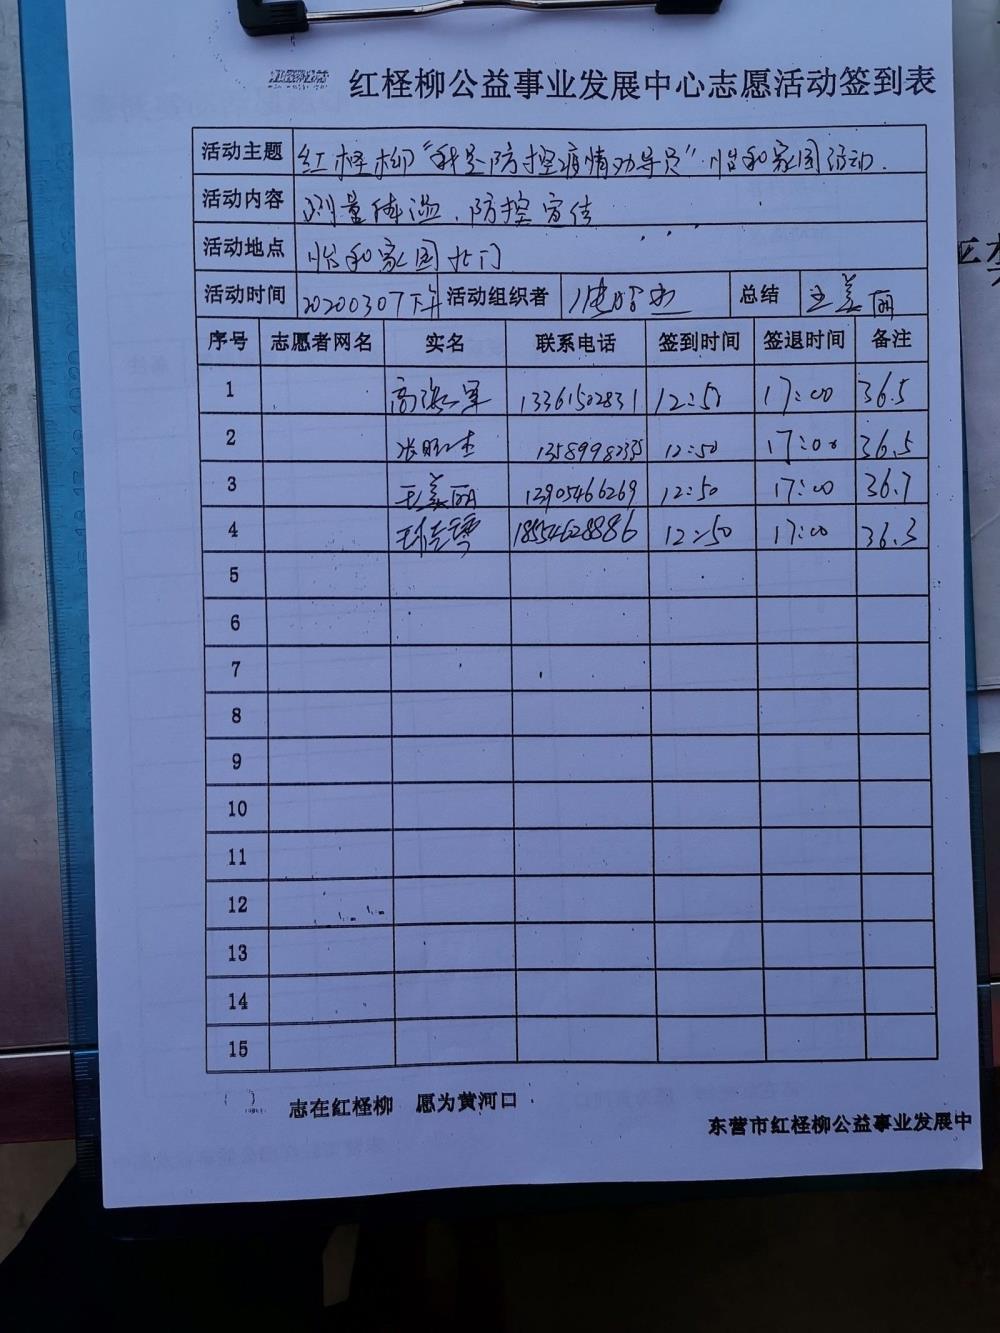 红柽柳公益事业发展中心志愿活动签到表
活动主题 红柽柳“我是防控疫情劝导员”怡和家园活动.
活动内容 测量体温、防控宣传
活动地点 怡和家园北门
活动时间 20200307下午 活动组织者 总结 王美丽
序号 志愿者网名 实名 联系电话 签到时间 签退时间 备注
1 高海军 13361502831 12:50 17:00 36.5
2 12:50 17:00 36.5
3 王美丽 13905466269 12:50 17:00 36.7
4 18554628886 12:50 17:00 36.3
5
6
7
8
9
10
11
12
13
14
15
志在红柽柳 愿为黄河口
东营市红柽柳公益事业发展中